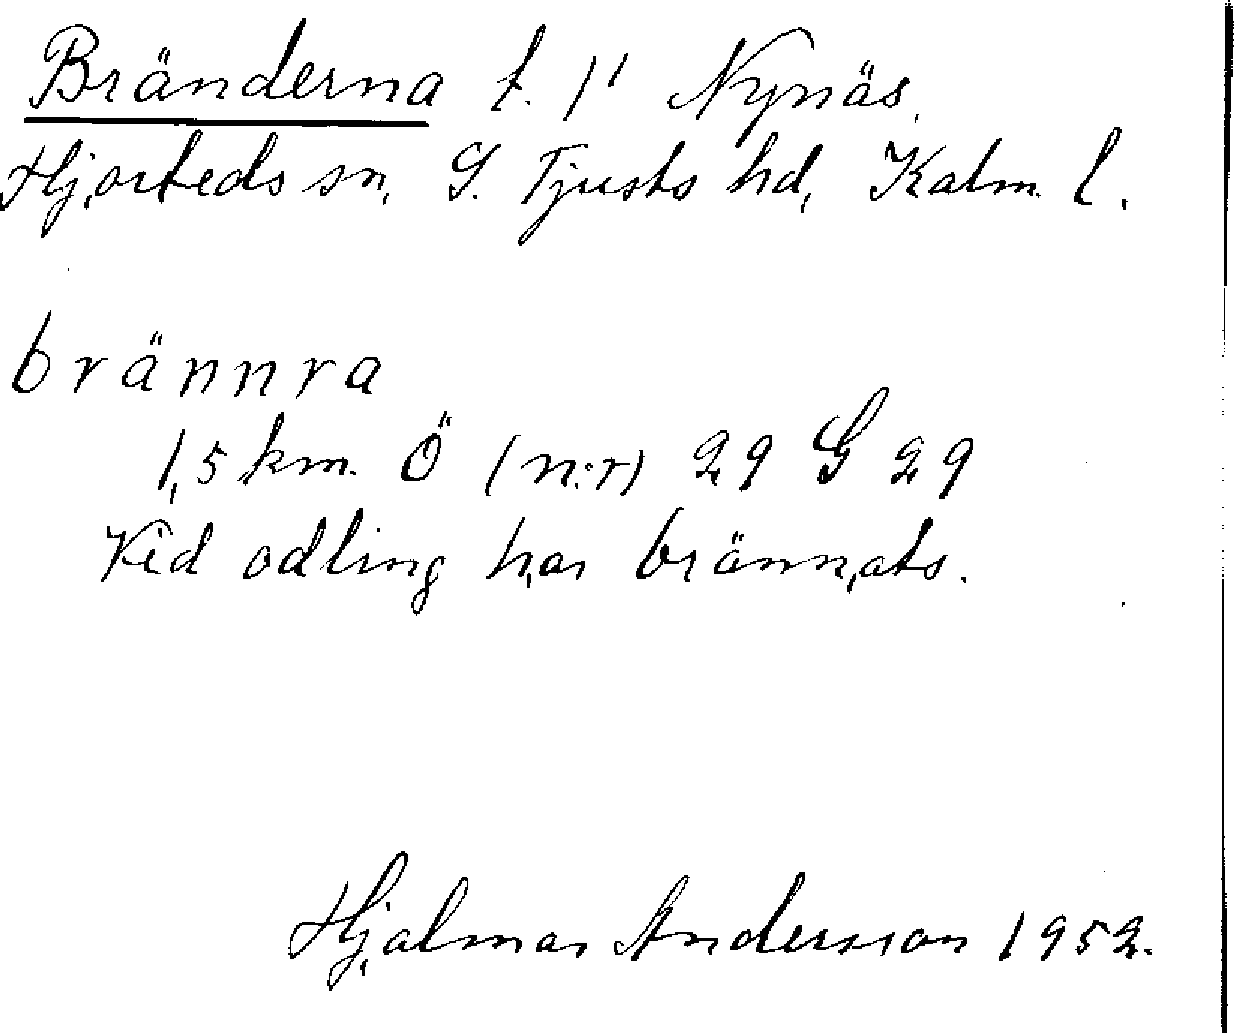 Bränderna t. 1¹ Nynäs.
Hjorteds sn. S. Tjusts hd, Kalm. l.
brännra
1,5 km. Ö (n:r) 29 G 29
Vid odling har brännats.
Hjalmar Andersson 1952.